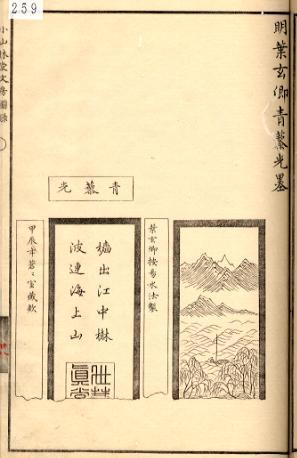 259
明葉玄卿青藜光墨
青藜光
葉玄卿按易水法製
檣出江中樹
波連海上山
甲辰年蒼蒼室藏款
小山林堂文房圖錄